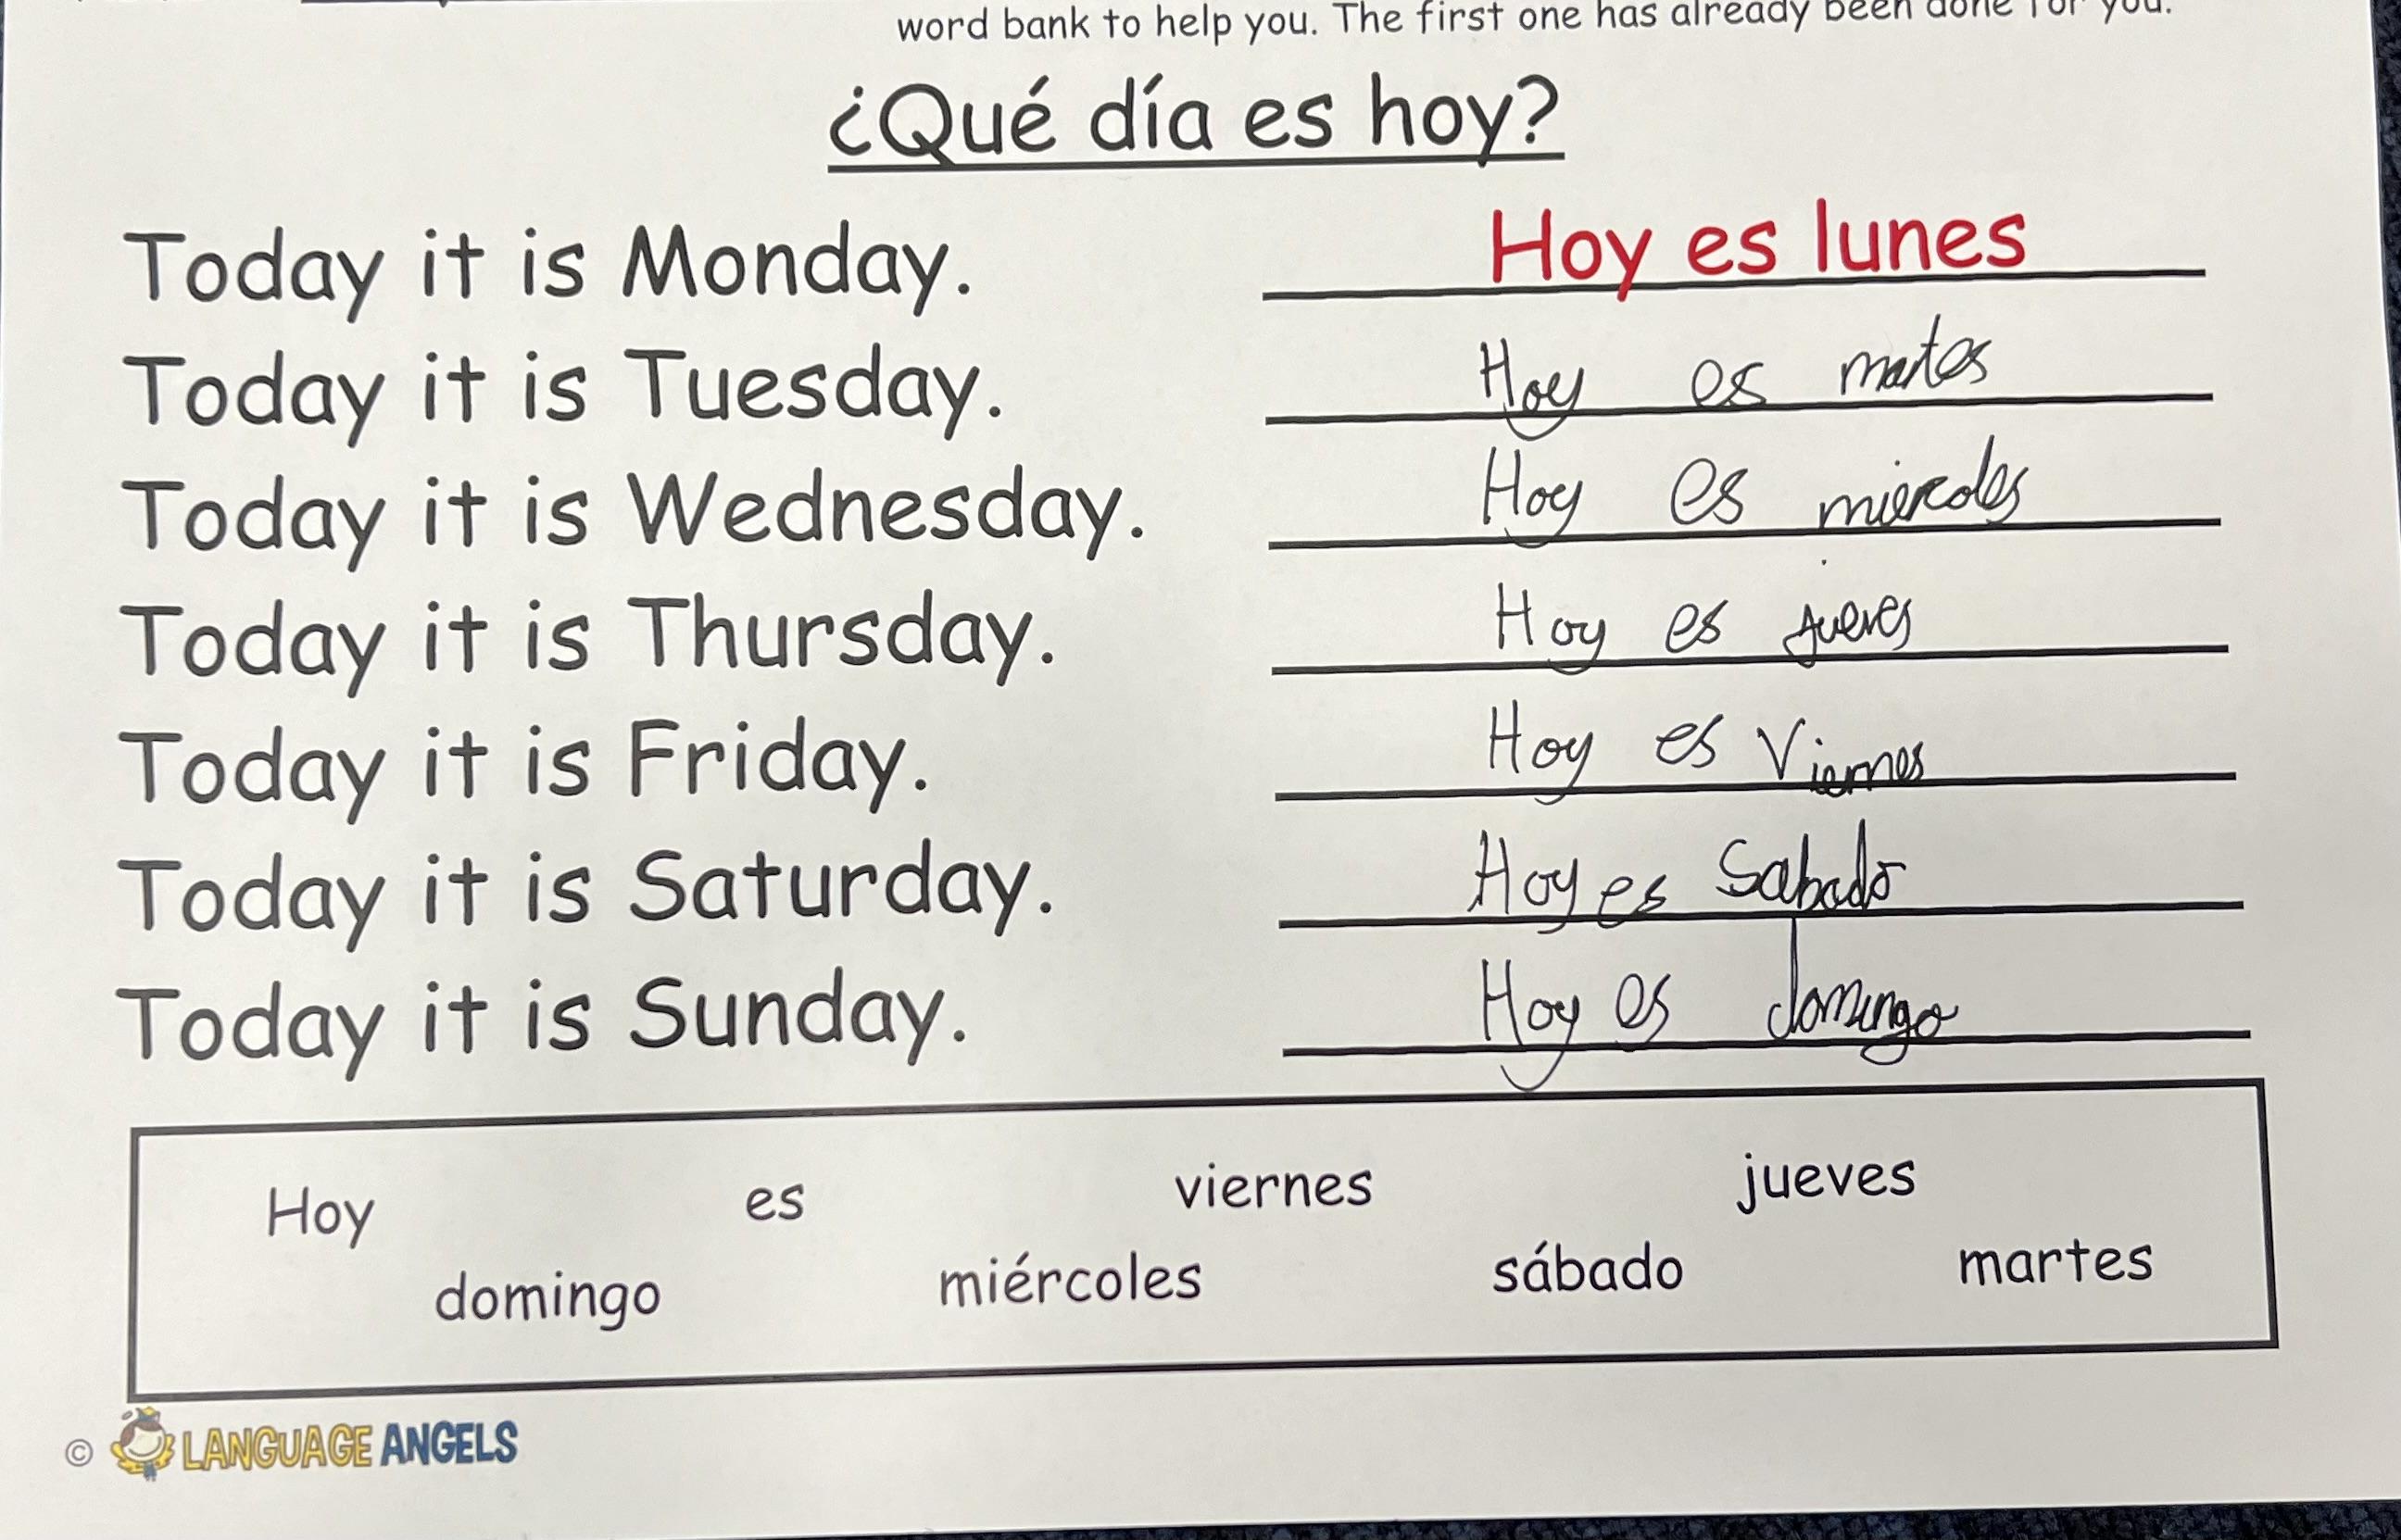 word bank to help you. The first one has already been done for you.
¿Qué día es hoy?
Today it is Monday. Hoy es lunes
Today it is Tuesday. Hoy es martes
Today it is Wednesday. Hoy es miercoles
Today it is Thursday. Hoy es jueves
Today it is Friday. Hoy es Viernes
Today it is Saturday. Hoy es Sabado
Today it is Sunday. Hoy es domingo
Hoy es viernes jueves
domingo miércoles sábado martes
© LANGUAGE ANGELS